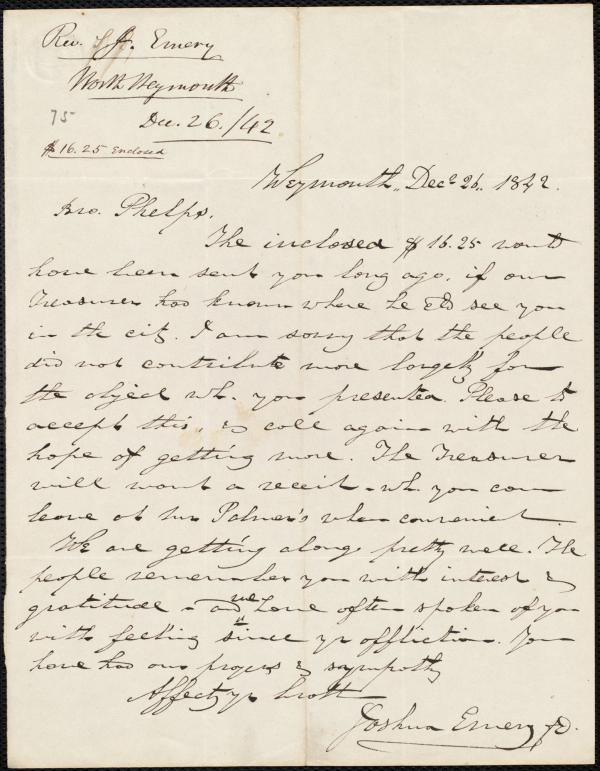 Rev. J. Emery
North Weymouth
75
Dec. 26./42
$16.25 Enclosed
Weymouth, Dec. 26, 1842.
Bro. Phelps,
The inclosed $16.25 would
have been sent you long ago, if our
Treasurer had known where he cd see you
in the city. I am sorry that the people
did not contribute more largely for
the object wh. you presented. Please to
accept this, & call again with the
hope of getting more. The Treasurer
will want a receit - wh. you can
leave at Mr Palmer's when convenient.
We are getting along pretty well. The
people remember you with interest &
gratitude - and we have often spoken of you
with feeling since yr affliction. You
have had our prayers & sympathy
Affecty yr broth
Joshua Emery Jr.